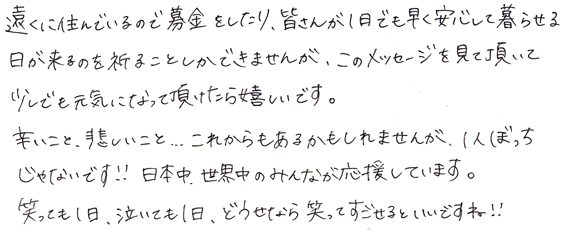 遠くに住んでいるので募金をしたり、皆さんが1日でも早く安心して暮らせる
日が来るのを祈ることしかできませんが、このメッセージを見て頂いて
少しでも元気になって頂けたら嬉しいです。
辛いこと、悲しいこと…これからもあるかもしれませんが、1人ぼっち
じゃないです!! 日本中、世界中のみんなが応援しています。
笑っても1日、泣いても1日、どうせなら笑ってすごせるといいですね!!